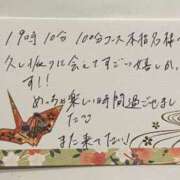 19時10分 100分コース本指名様へ
久し振りに会えてすごい嬉しい
す!!
めっちゃ楽しい時間過ごせまし
た
また来てたい!